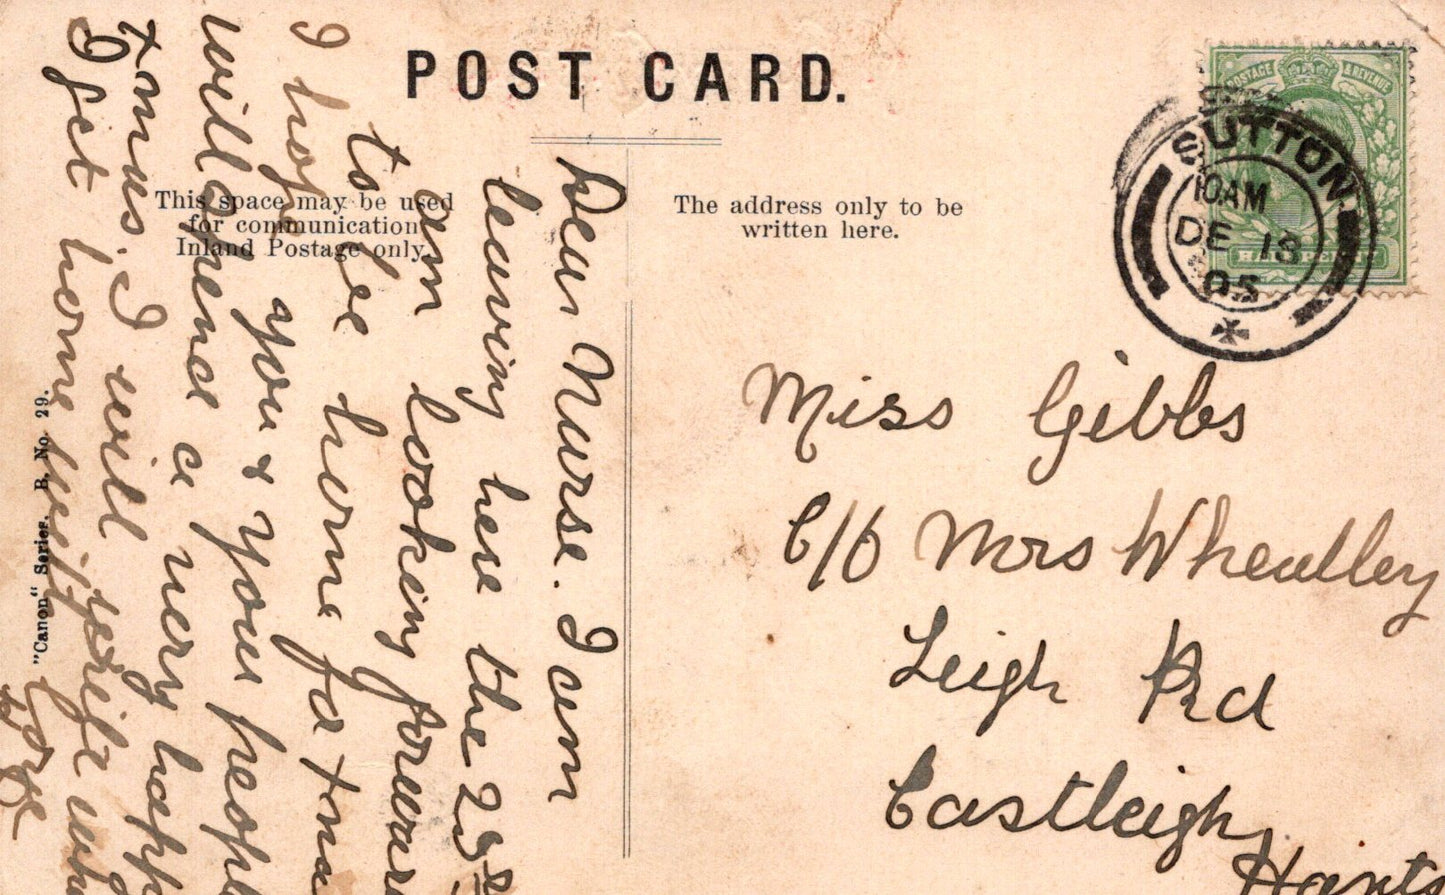 POST CARD.
This space may be used
for communication
Inland Postage only.
The address only to be
written here.
"Canon" Series. B. No. 29.
POSTAGE & REVENUE
HALFPENNY
SUTTON
10AM
DE 18
05
Dear Nurse. I am
leaving here the 23
am looking forward
to be home for Xmas
I hope you & your people
will spend a very happy
Xmas. I will write when
I get home with
love
Miss Gibbs
C/O Mrs Wheatley
Leigh Rd
Eastleigh
Hants